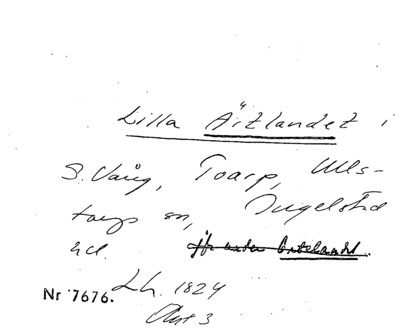 Lilla Ärtlandet i
S. Vång, Toarp, Ulls-
torps sn, Ingelstad
hd.
Nr 7676. Lh. 1824
Akt 3